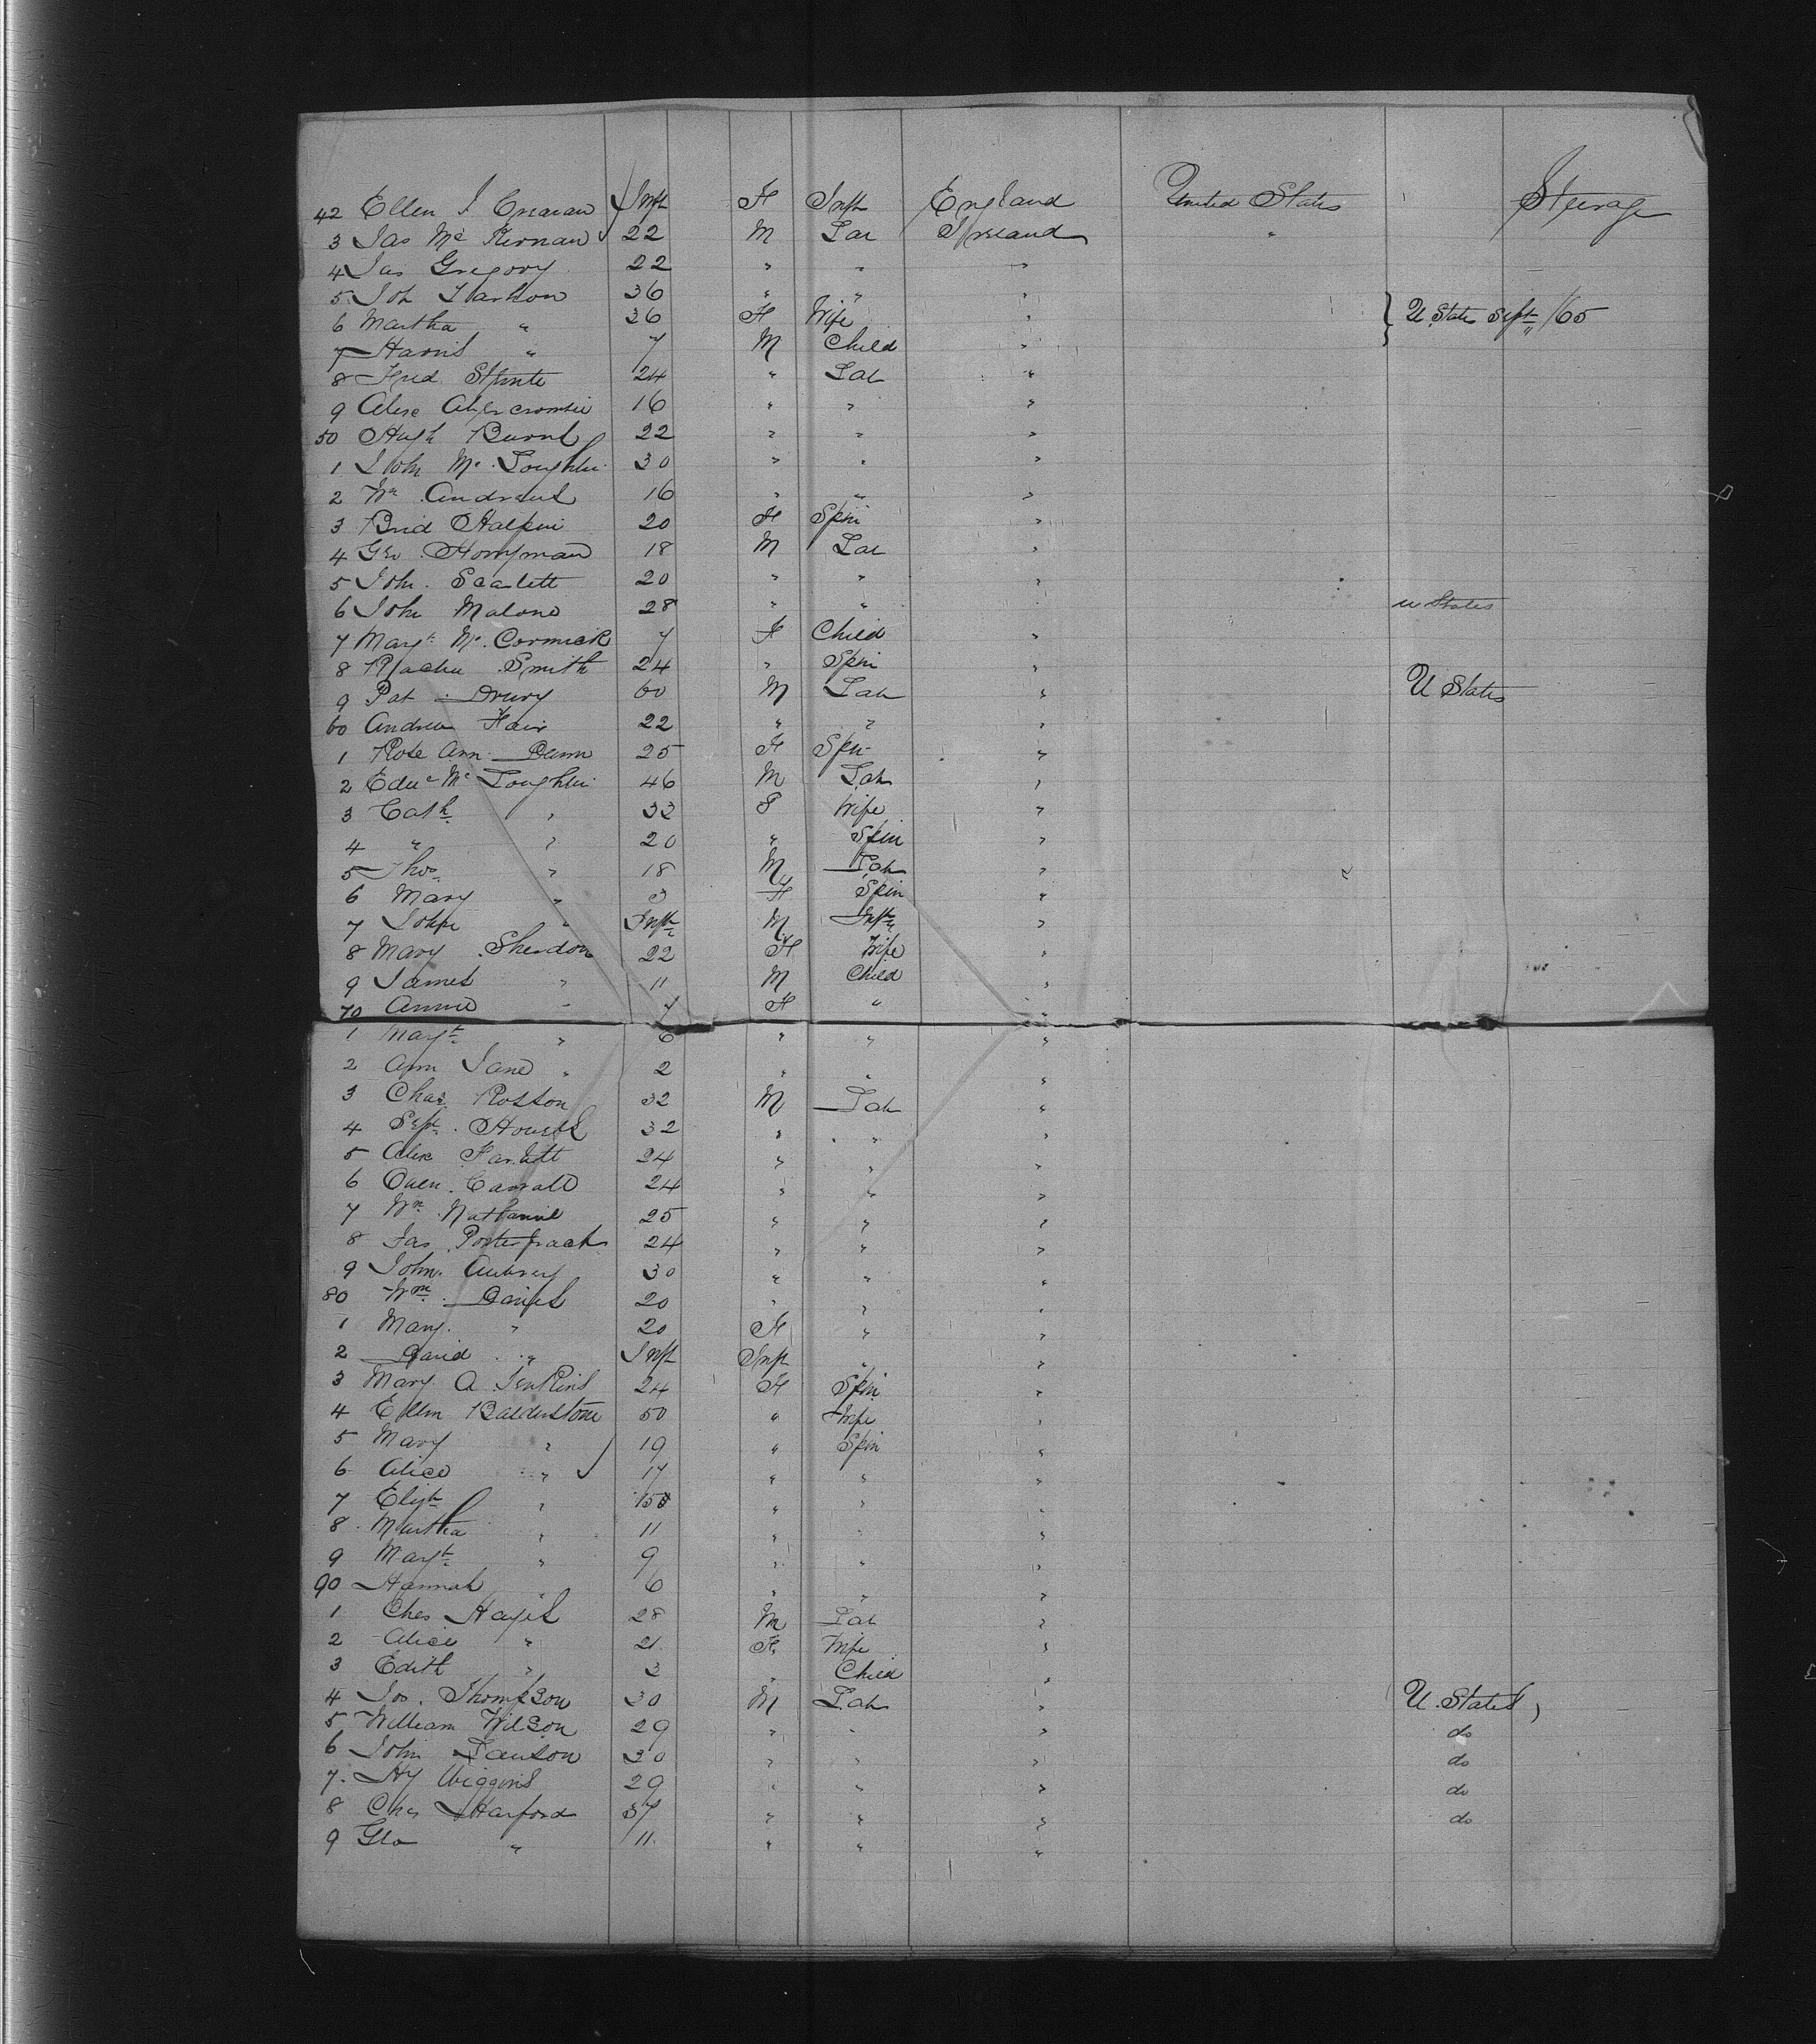 42 Ellen J Creavan Inft F Inft England United States Steerage
3 Jas Mc Kernan 22 M Lab Ireland "
4 Jas Gregory 22 " " "
5 Joh 36 " " "
6 Martha " 36 F Wife " } U. States Sept /65
7 Harris " 7 M Child "
8 Fred 24 " Lab "
9 Alex Abercrombie 16 " " "
50 Hugh Burns 22 " " "
1 John Mc Loughlin 30 " " "
2 Wm Andrews 16 " " "
3 Brid Halpin 20 F Spin "
4 Geo Honyman 18 M Lab "
5 John Scarlett 20 " " "
6 John Malone 28 " " U States
7 Margt Mc Cormick 7 F Child "
8 Rachel Smith 24 " Spin "
9 Pat Drury 60 M Lab " U States
60 Andrew Hair 22 " " "
1 Rose Ann Dunn 25 F Spin "
2 Edwd Mc Loughlin 46 M Lab "
3 Cath " 33 F Wife "
4 " " 20 " Spin "
5 Thos " 18 M Lab "
6 Mary " 3 F Spin "
7 John " Inft M Inft "
8 Mary Sheridon 22 F Wife "
9 James " 11 M Child "
70 Annie " 7 F " "
1 Margt " 6 " " "
2 Ann Jane " 2 " " "
3 Chas Rosson 32 M Lab "
4 Sept Howells 32 " " "
5 Alex 24 " " "
6 Owen Carroll 24 " " "
7 Wm Nathaniel 25 " " "
8 Jas 24 " " "
9 John Aubrey 30 " " "
80 Wm Davies 20 " " "
1 Mary " 20 F " "
2 David " Inft Inft " "
3 Mary A Jenkins 24 F Spin "
4 Ellen Balderstone 50 " Wife "
5 Mary " 19 " Spin "
6 Alice " 17 " " "
7 Elizh " 15 " " "
8 Martha " 11 " " "
9 Margt " 9 " " "
90 Hannah " 6 " " "
1 Chas Hayes 28 M Lab "
2 Alice " 21 F Wife "
3 Edith " 3 " Child "
4 Jos. Thompson 30 M Lab " U. States
5 William Wilson 29 " " " do
6 John Lawson 30 " " " do
7 Hy Wiggins 29 " " " do
8 Chas Harford 37 " " " do
9 Geo " 11 " " "